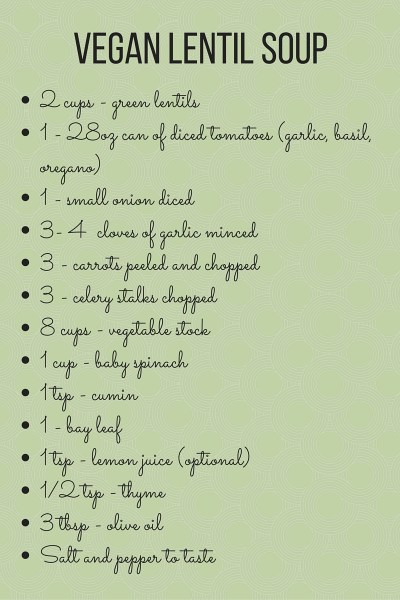 VEGAN LENTIL SOUP
• 2 cups - green lentils
• 1 - 28oz can of diced tomatoes (garlic, basil,
oregano)
• 1 - small onion diced
• 3- 4 cloves of garlic minced
• 3 - carrots peeled and chopped
• 3 - celery stalks chopped
• 8 cups - vegetable stock
• 1 cup - baby spinach
• 1 tsp - cumin
• 1 - bay leaf
• 1 tsp - lemon juice (optional)
• 1/2 tsp - thyme
• 3 tbsp - olive oil
• Salt and pepper to taste